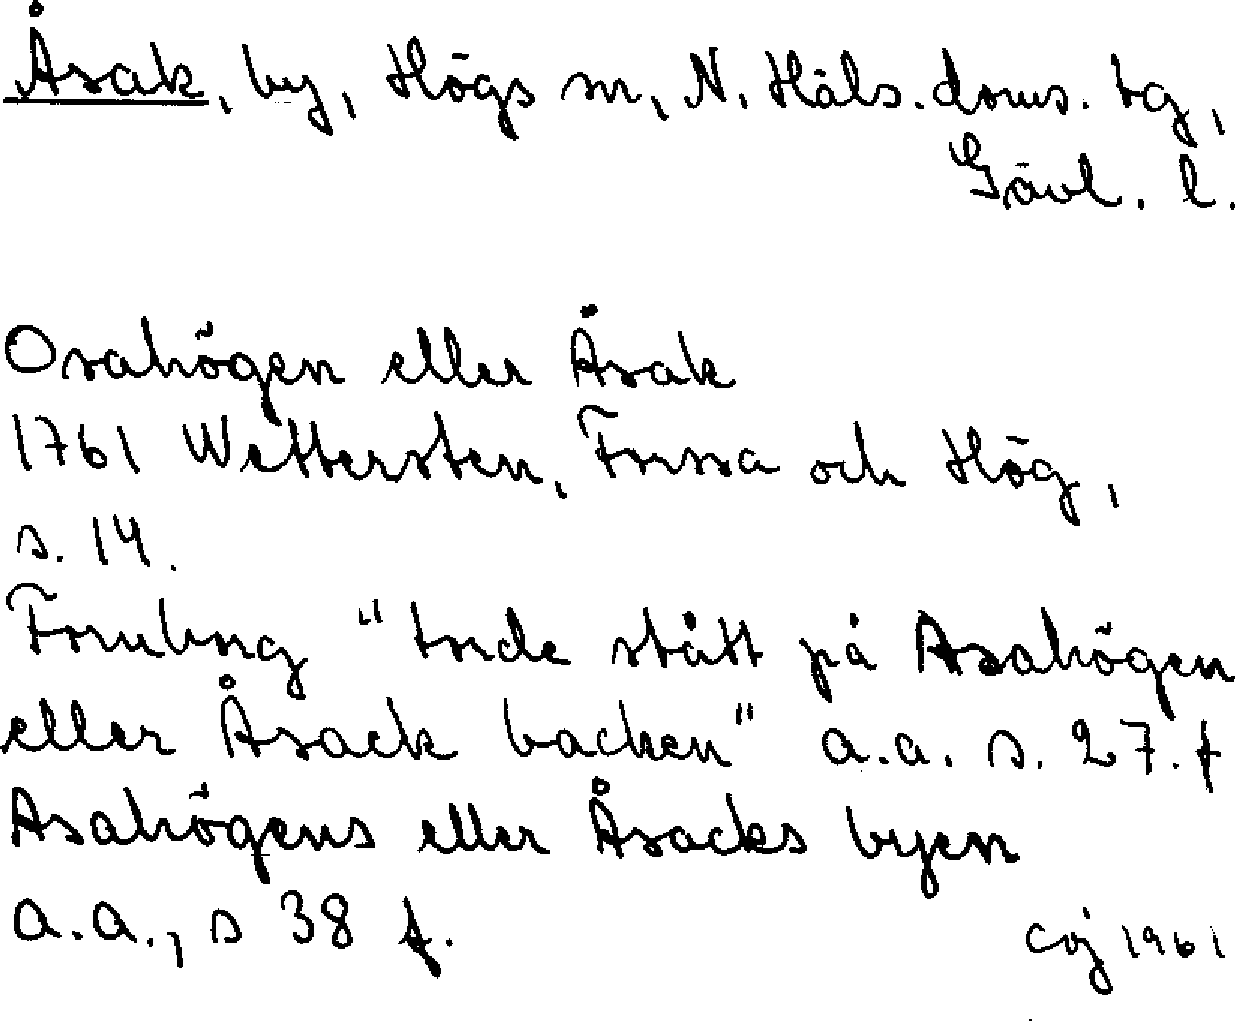 Åsak, by, Högs sn, N. Häls. doms. tg,
Gävl. l.
Osahögen eller Åsak
1761 Wettersten, Forssa och Hög,
s. 14.
Fornborg "torde stått på Asahögen
eller Åsack backen" a.a. s. 27. f
Asahögens eller Åsacks byen
a.a., s 38 f.
coj 1961